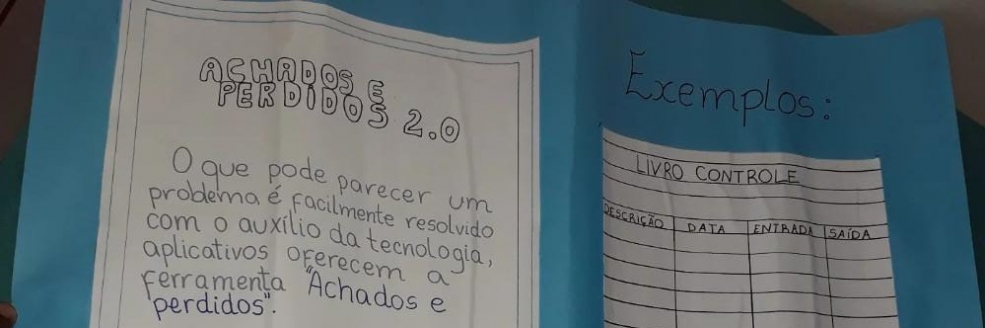 ACHADOS E
PERDIDOS 2.0
O que pode parecer um
problema é facilmente resolvido
com o auxílio da tecnologia,
aplicativos oferecem a
ferramenta "Achados e
perdidos".
Exemplos:
LIVRO CONTROLE
DESCRIÇÃO DATA ENTRADA SAÍDA